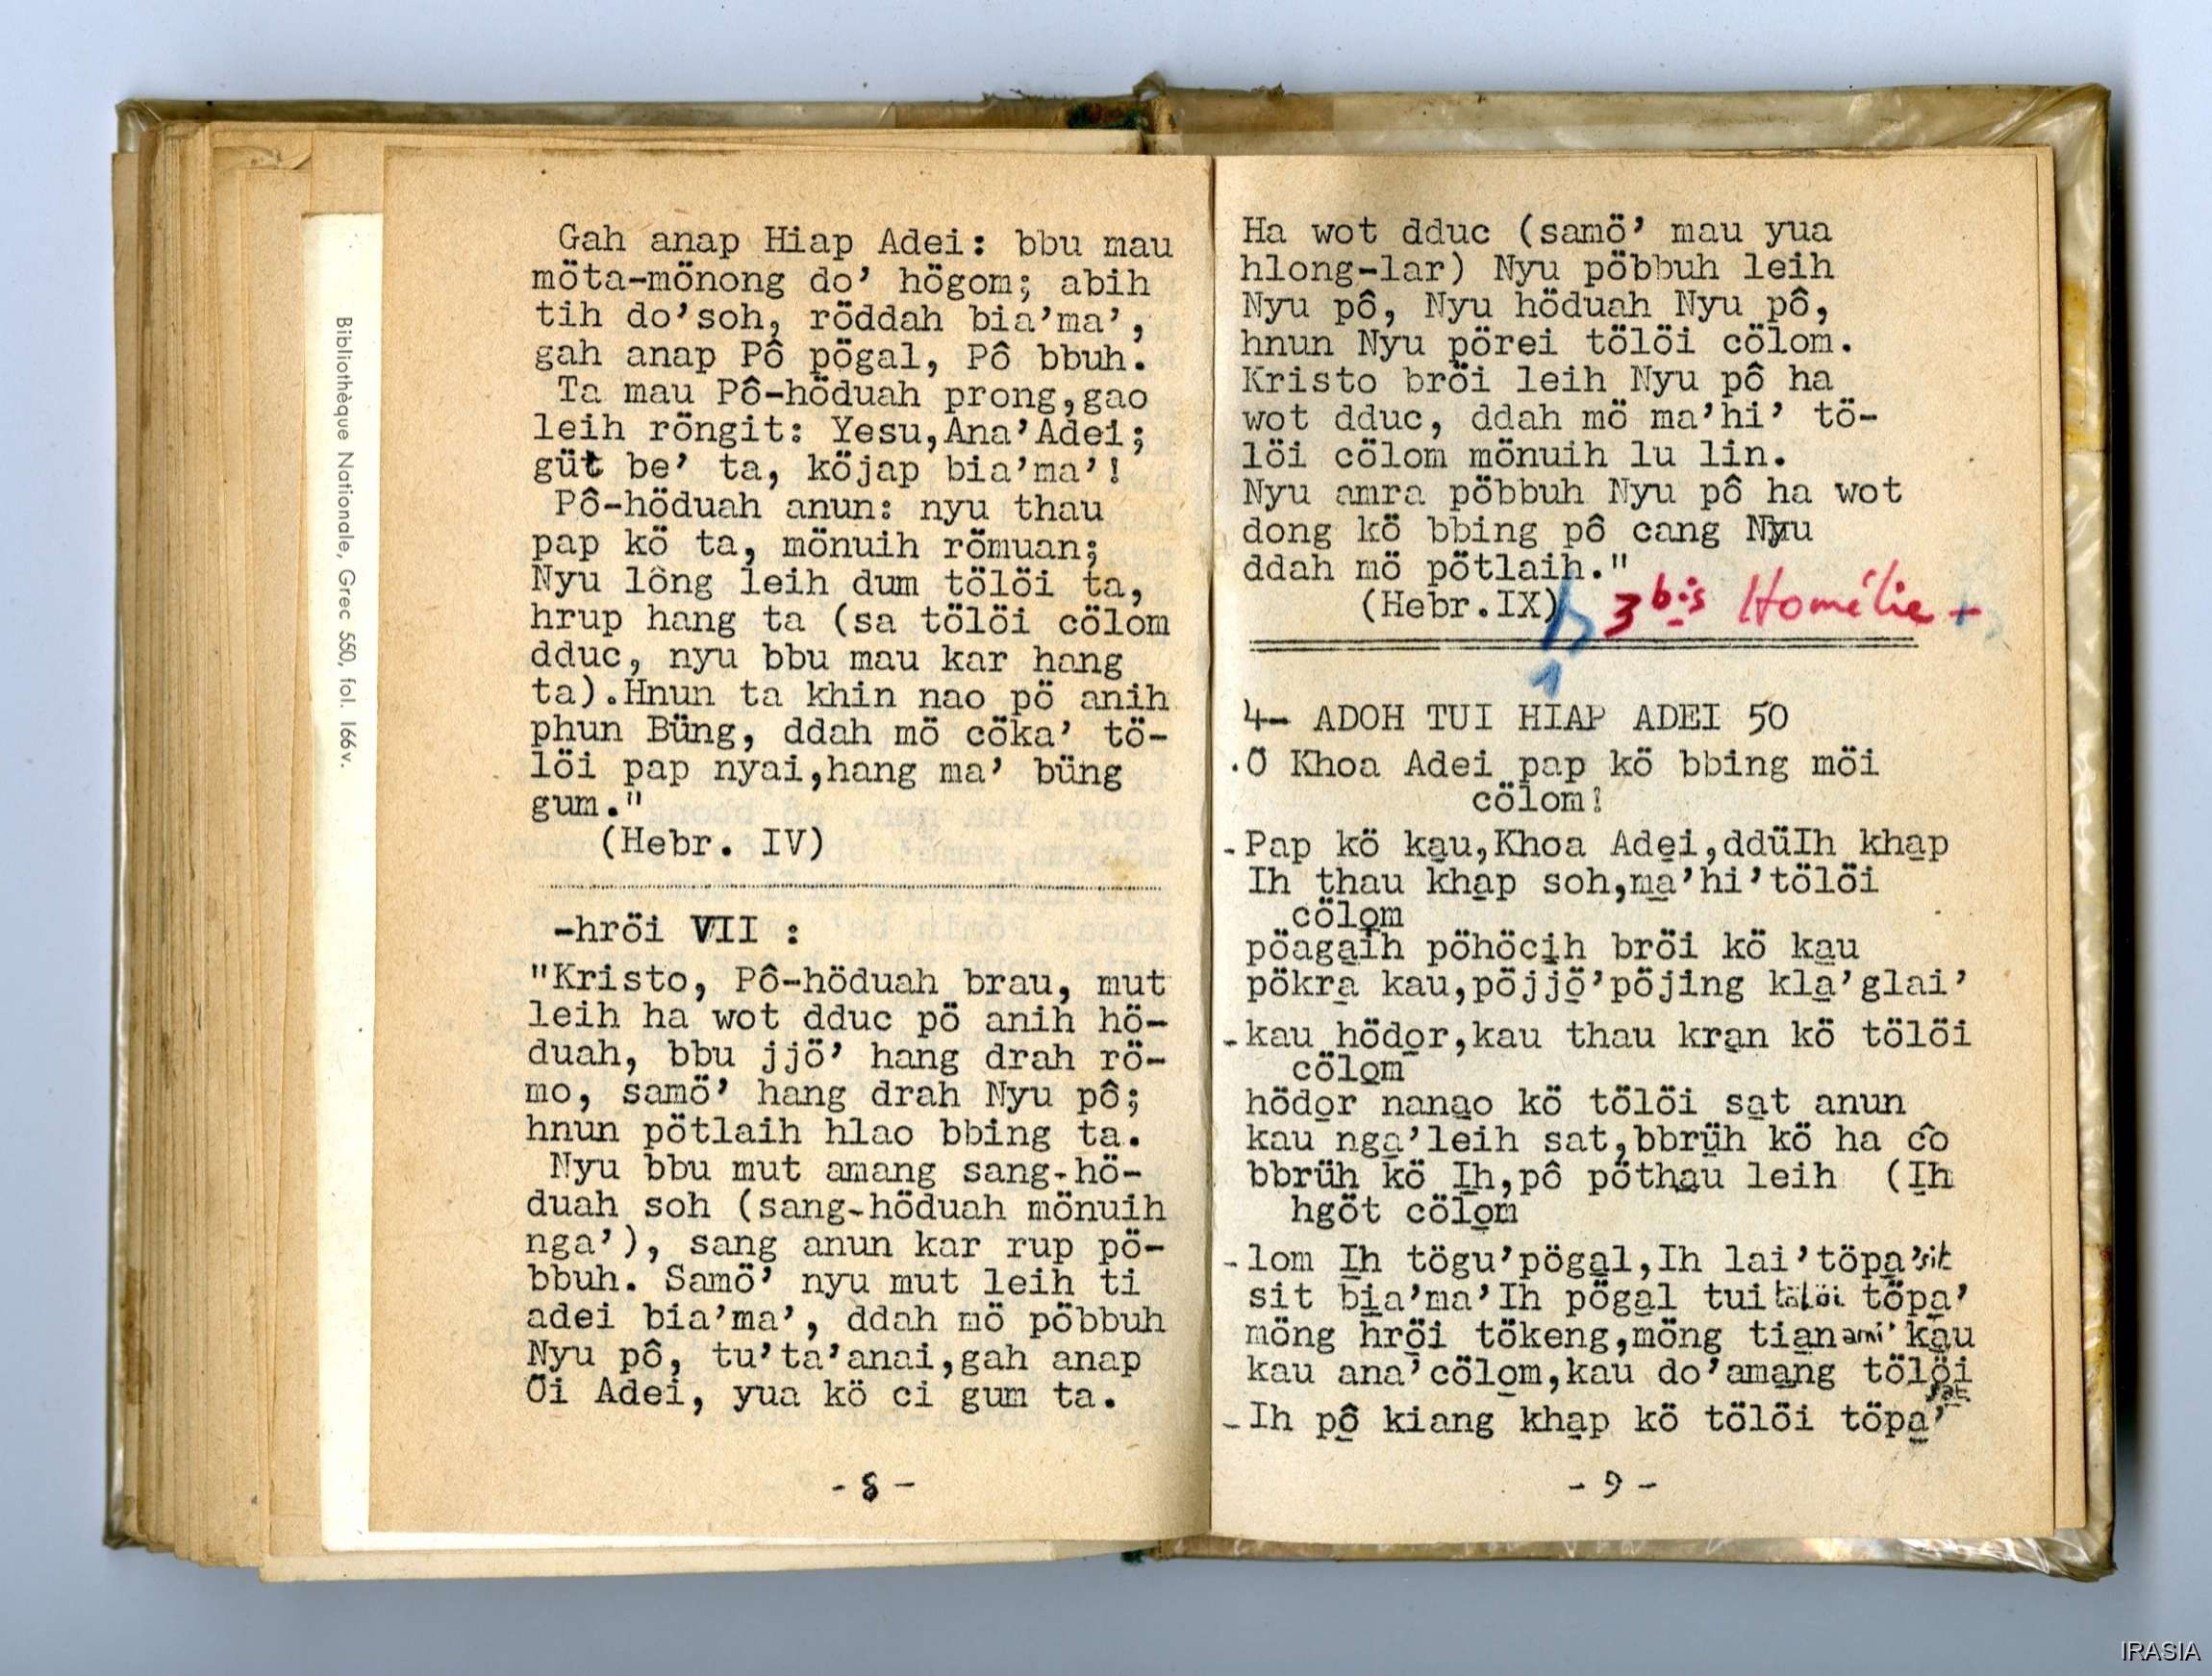 Bibliothèque Nationale, Grec 550, fol. 166v.
Gah anap Hiap Adei: bbu mau
möta-mönong do' högom; abih
tih do'soh, röddah bia'ma',
gah anap Pô pögal, Pô bbuh.
Ta mau Pô-höduah prong,gao
leih röngit: Yesu,Ana'Adei;
güt be' ta, köjap bia'ma'!
Pô-höduah anun: nyu thau
pap kö ta, mönuih römuan;
Nyu lông leih dum tölöi ta,
hrup hang ta (sa tölöi cölom
dduc, nyu bbu mau kar hang
ta).Hnun ta khin nao pö anih
phun Büng, ddah mö cöka' tö-
löi pap nyai,hang ma' büng
gum."
(Hebr. IV)
-hröi VII :
"Kristo, Pô-höduah brau, mut
leih ha wot dduc pö anih hö-
duah, bbu jjö' hang drah rö-
mo, samö' hang drah Nyu pô;
hnun pötlaih hlao bbing ta.
Nyu bbu mut amang sang-hö-
duah soh (sang-höduah mönuih
nga'), sang anun kar rup pö-
bbuh. Samö' nyu mut leih ti
adei bia'ma', ddah mö pöbbuh
Nyu pô, tu'ta'anai,gah anap
Öi Adei, yua kö ci gum ta.
- 8 -
Ha wot dduc (samö' mau yua
hlong-lar) Nyu pöbbuh leih
Nyu pô, Nyu höduah Nyu pô,
hnun Nyu pörei tölöi cölom.
Kristo bröi leih Nyu pô ha
wot dduc, ddah mö ma'hi' tö-
löi cölom mönuih lu lin.
Nyu amra pöbbuh Nyu pô ha wot
dong kö bbing pô cang Nyu
ddah mö pötlaih."
(Hebr.IX) 3 bis Homélie +
4- ADOH TUI HIAP ADEI 50
.Ö Khoa Adei pap kö bbing möi
cölom!
-Pap kö kau,Khoa Adei,ddüIh khap
Ih thau khap soh,ma'hi'tölöi
cölom
pöagaih pöhöcih bröi kö kau
pökra kau,pöjjö'pöjing kla'glai'
-kau hödor,kau thau kran kö tölöi
cölom
hödor nanao kö tölöi sat anun
kau nga'leih sat,bbrüh kö ha cô
bbrüh kö Ih,pô pöthau leih (Ih
hgöt cölom
-lom Ih tögu'pögal,Ih lai'töpa'sit
sit bia'ma'Ih pögal tui tölöi töpa'
möng hröi tökeng,möng tian ami' kau
kau ana'cölom,kau do'amang tölöi
sat
-Ih pô kiang khap kö tölöi töpa'
- 9 -
IRASIA